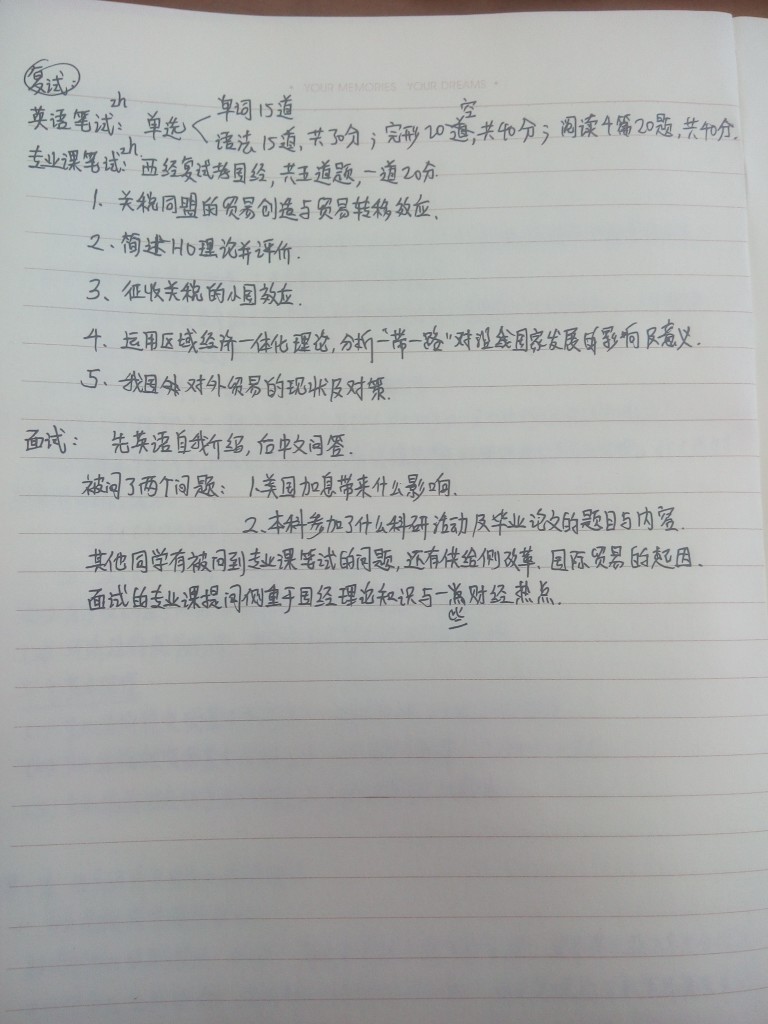 • YOUR MEMORIES YOUR DREAMS •
复试:
英语笔试2h: 单选<单词15道
语法15道,共30分;完形20空,共40分;阅读4篇20题,共40分.
专业课笔试2h: 西经复试考国经,共五道题,一道20分.
1、关税同盟的贸易创造与贸易转移效应.
2、简述HO理论并评价.
3、征收关税的小国效应.
4、运用区域经济一体化理论,分析"一带一路"对沿线国家发展的影响及意义.
5、我国对外贸易的现状及对策.
面试: 先英语自我介绍,后中文问答.
被问了两个问题: 1.美国加息带来什么影响.
2、本科参加了什么科研活动及毕业论文的题目与内容.
其他同学有被问到专业课笔试的问题,还有供给侧改革、国际贸易的起因.
面试的专业课提问侧重于国经理论知识与一些财经热点.